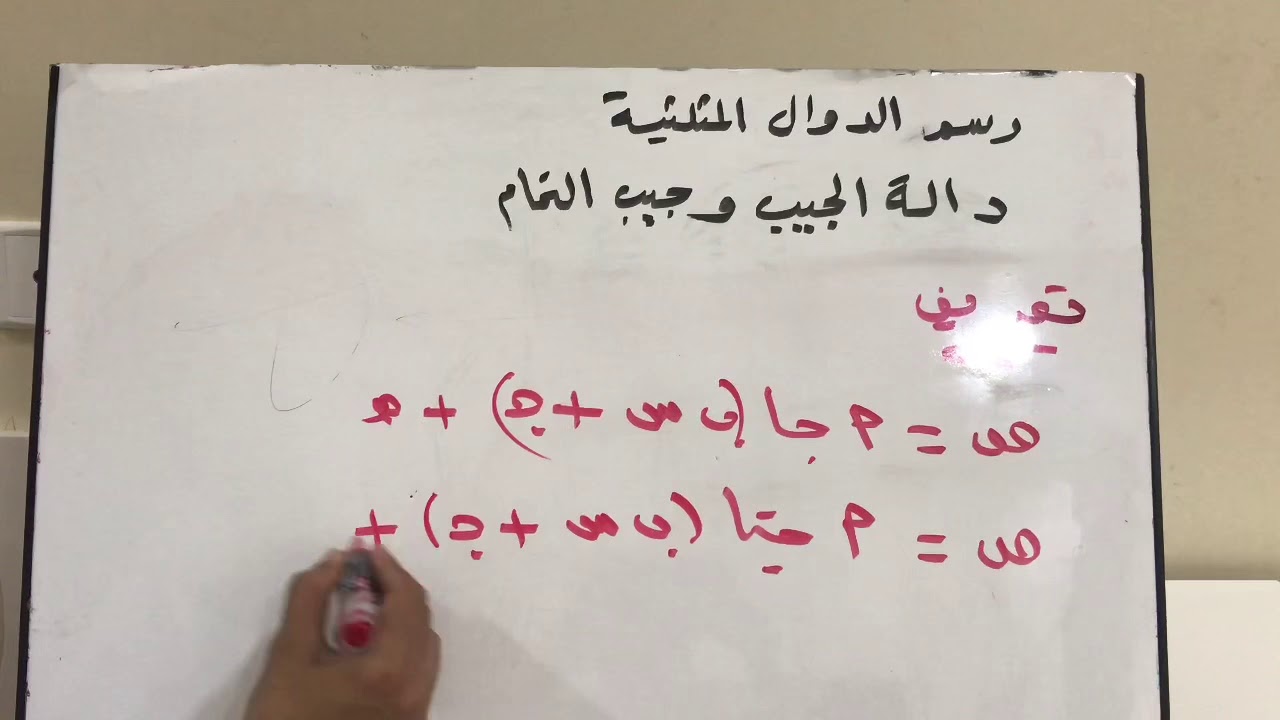 رسم الدوال المثلثية
دالة الجيب وجيب التمام
تعريف
ص = م جا (ب س + ج) + هـ
ص = م جتا (ب س + ج) +